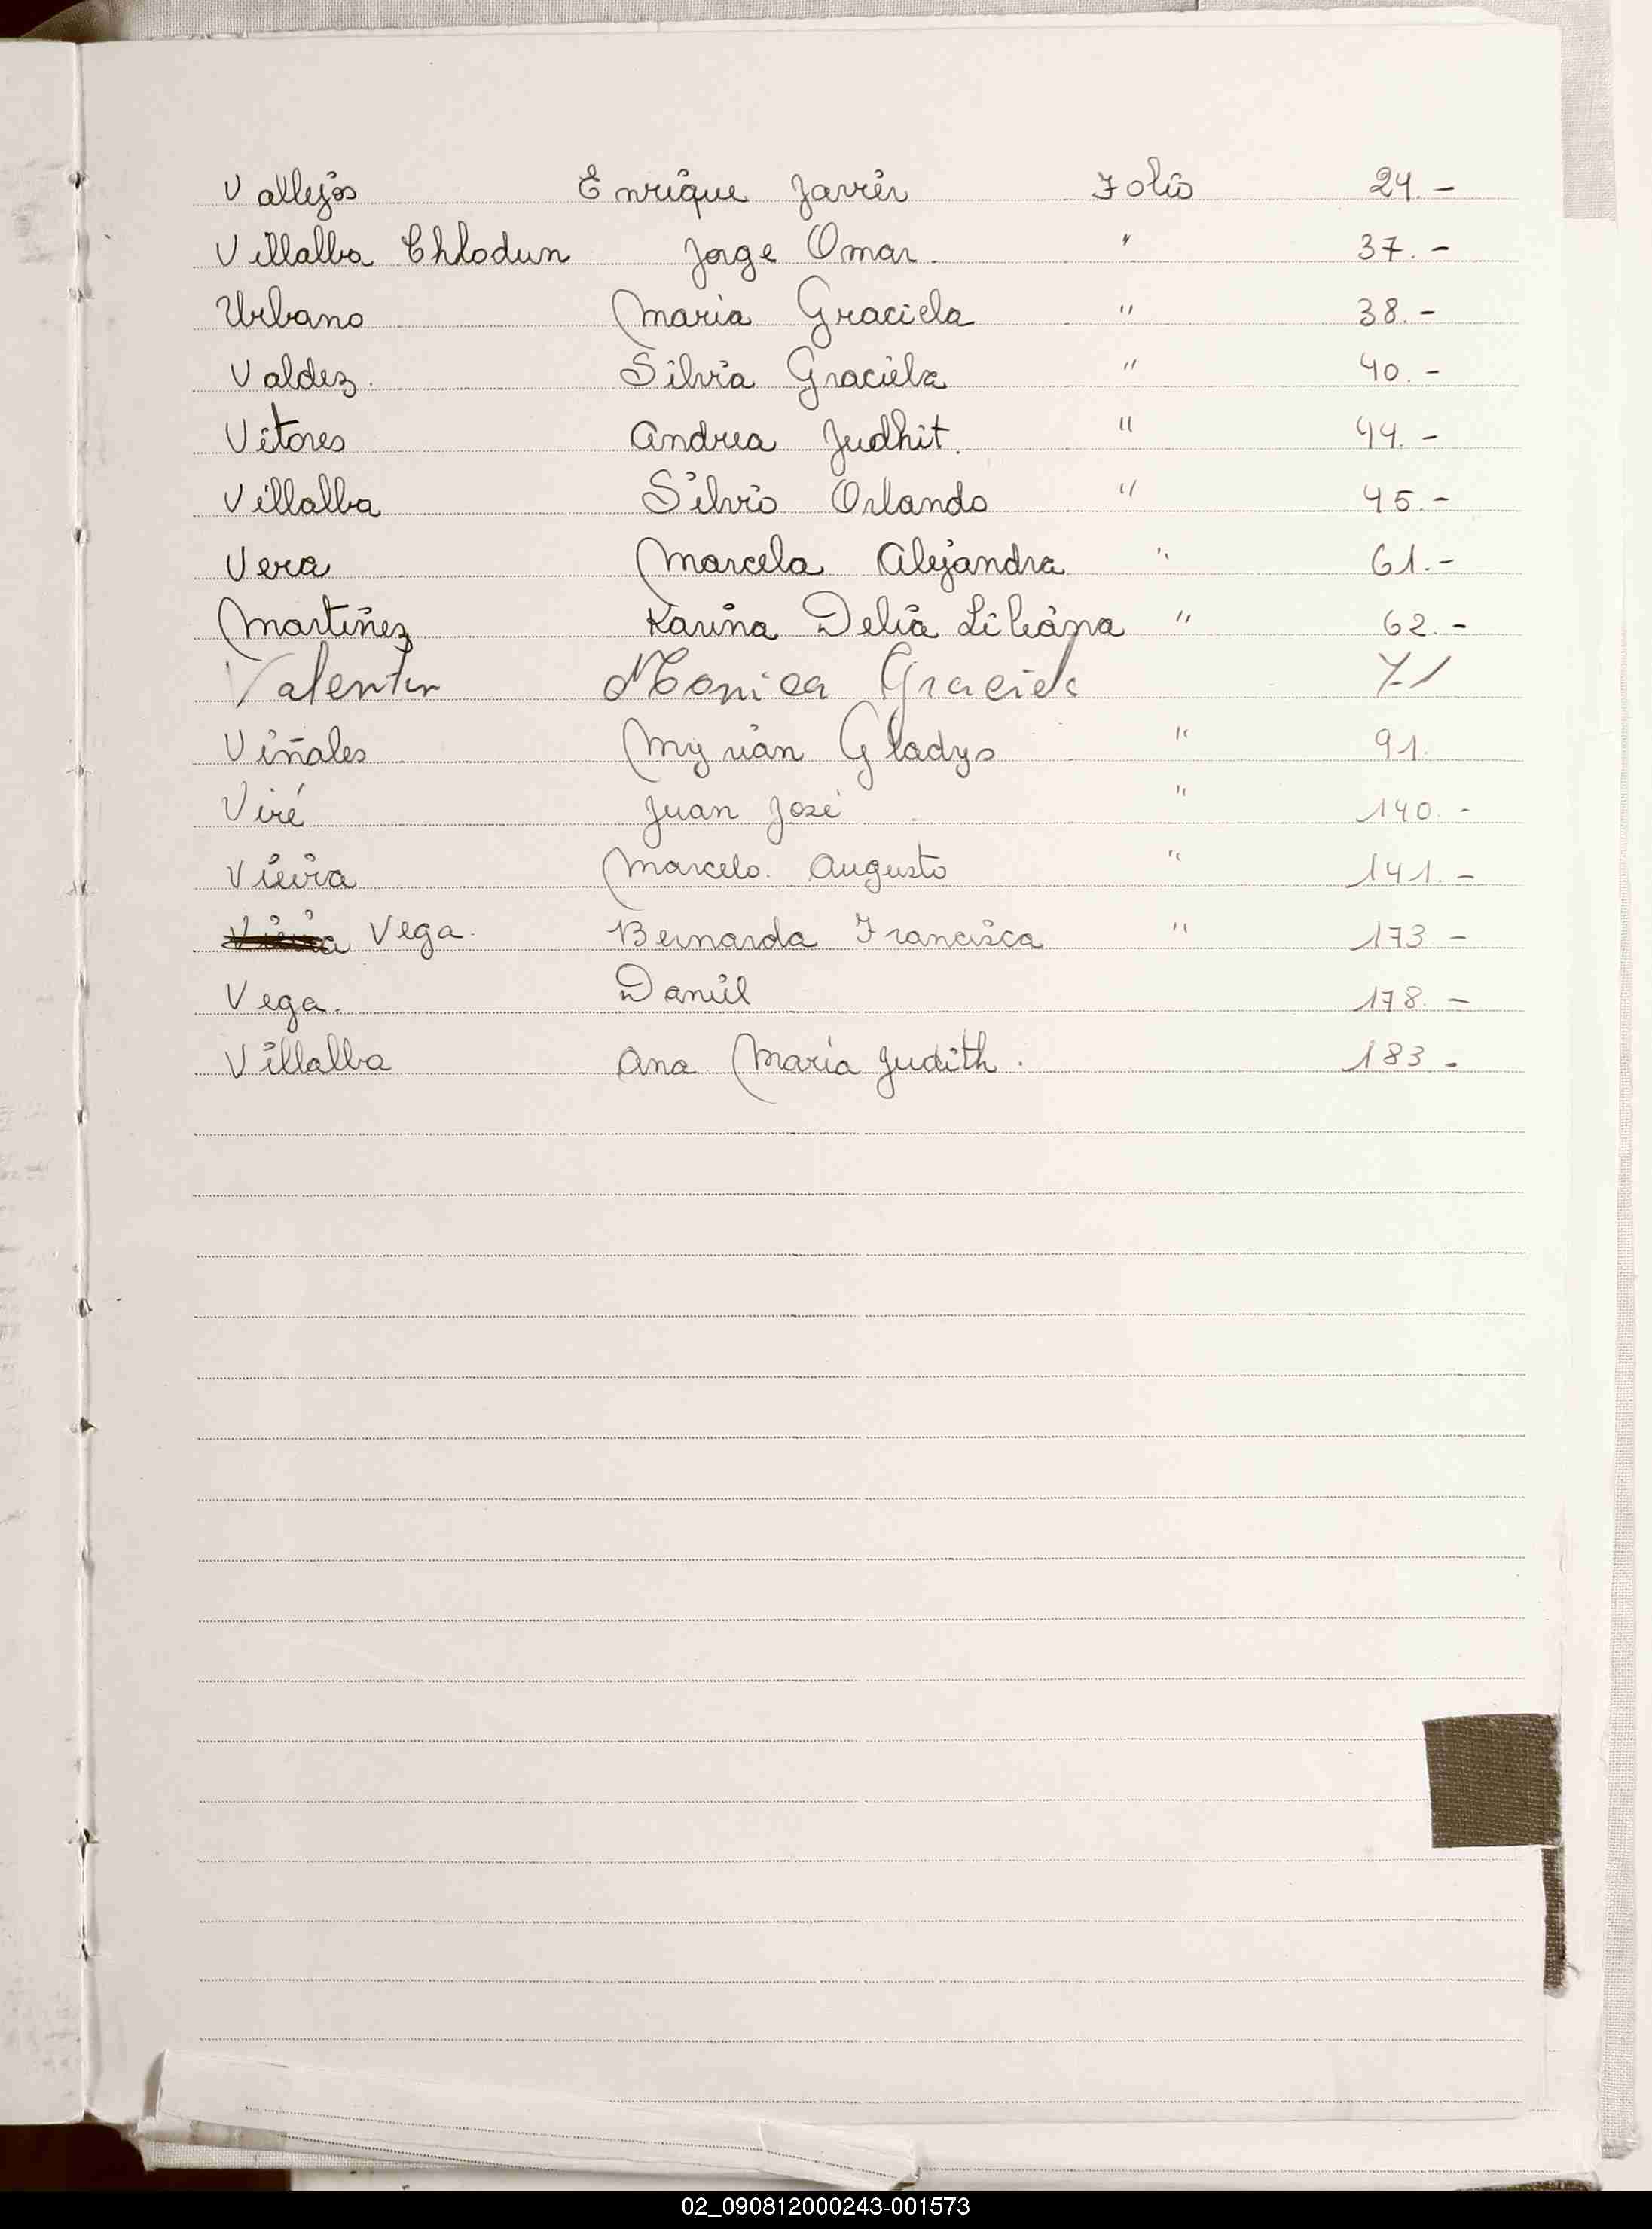 Vallejos Enrique Javier Folio 24.-
Villalba Chlodun Jorge Omar. " 37.-
Urbano Maria Graciela " 38.-
Valdez. Silvia Graciela " 40.-
Vitores Andrea Judhit. " 44.-
Villalba Silvio Orlando " 45.-
Vera Marcela Alejandra " 61.-
Martinez Karina Delia Liliana " 62.-
Valentin Monica Graciela 71
Viñales Myrian Gladys " 91.
Viré Juan José " 140.-
Vieira Marcelo. Augusto " 141.-
Vega. Bernarda Francisca " 173-
Vega. Daniel 178.-
Villalba Ana Maria Judith. 183.-
02_090812000243-001573